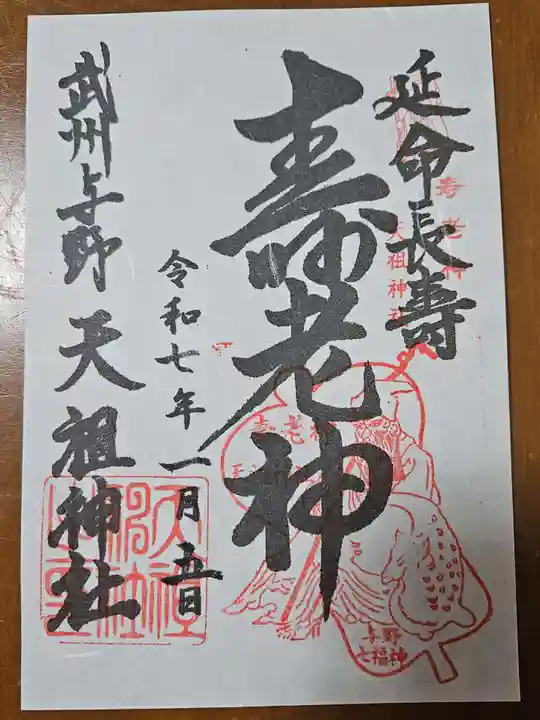 延命長壽
寿老神
天祖神社
壽老神
寿老神
令和七年一月五日
武州与野 天祖神社
与野
七福神